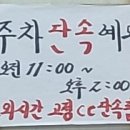 주차 단속 예
오전 11:00 ~
오후 2:00
외시간 고정 CC 단속